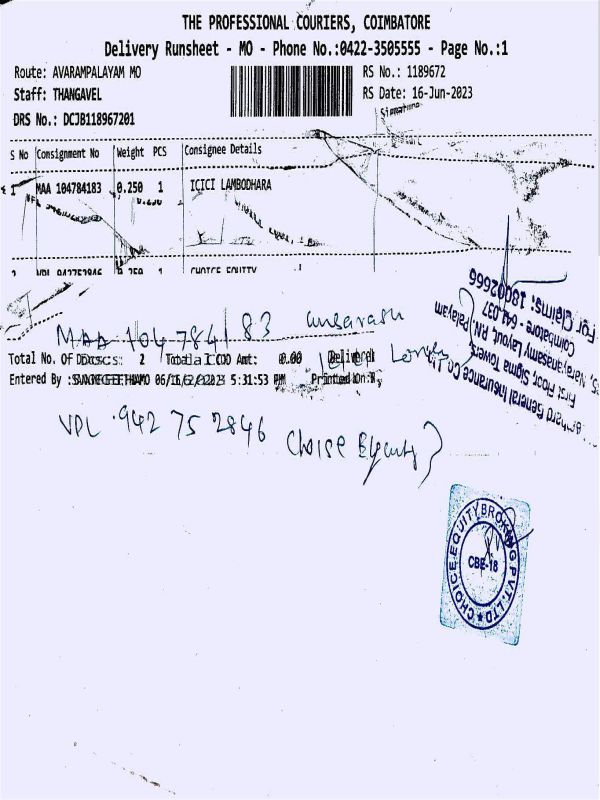 THE PROFESSIONAL COURIERS, COIMBATORE
Delivery Runsheet - MO - Phone No.:0422-3505555 - Page No.:1
Route: AVARAMPALAYAM MO RS No.: 1189672
Staff: THANGAVEL RS Date: 16-Jun-2023
DRS No.: DCJB118967201
Signature
S No Consignment No Weight PCS Consignee Details
1 MAA 104784183 0.250 1 ICICI LAMBODHARA
2 VPL 942752846 0.250 1 CHOICE EQUITY
MAA 104784183
Total No. Of Docs: 2 Total COD Amt: 0.00
Entered By : 5:31:53 PM Printed On
VPL 942 75 2846 Choise Equity
General Insurance Co
First Floor, Sigma Towers
Narayanasamy Layout, P.N. Palayam
Coimbatore 641 037
For Claims: 18002666
CHOICE EQUITY BROKING PVT. LTD
CBE-18